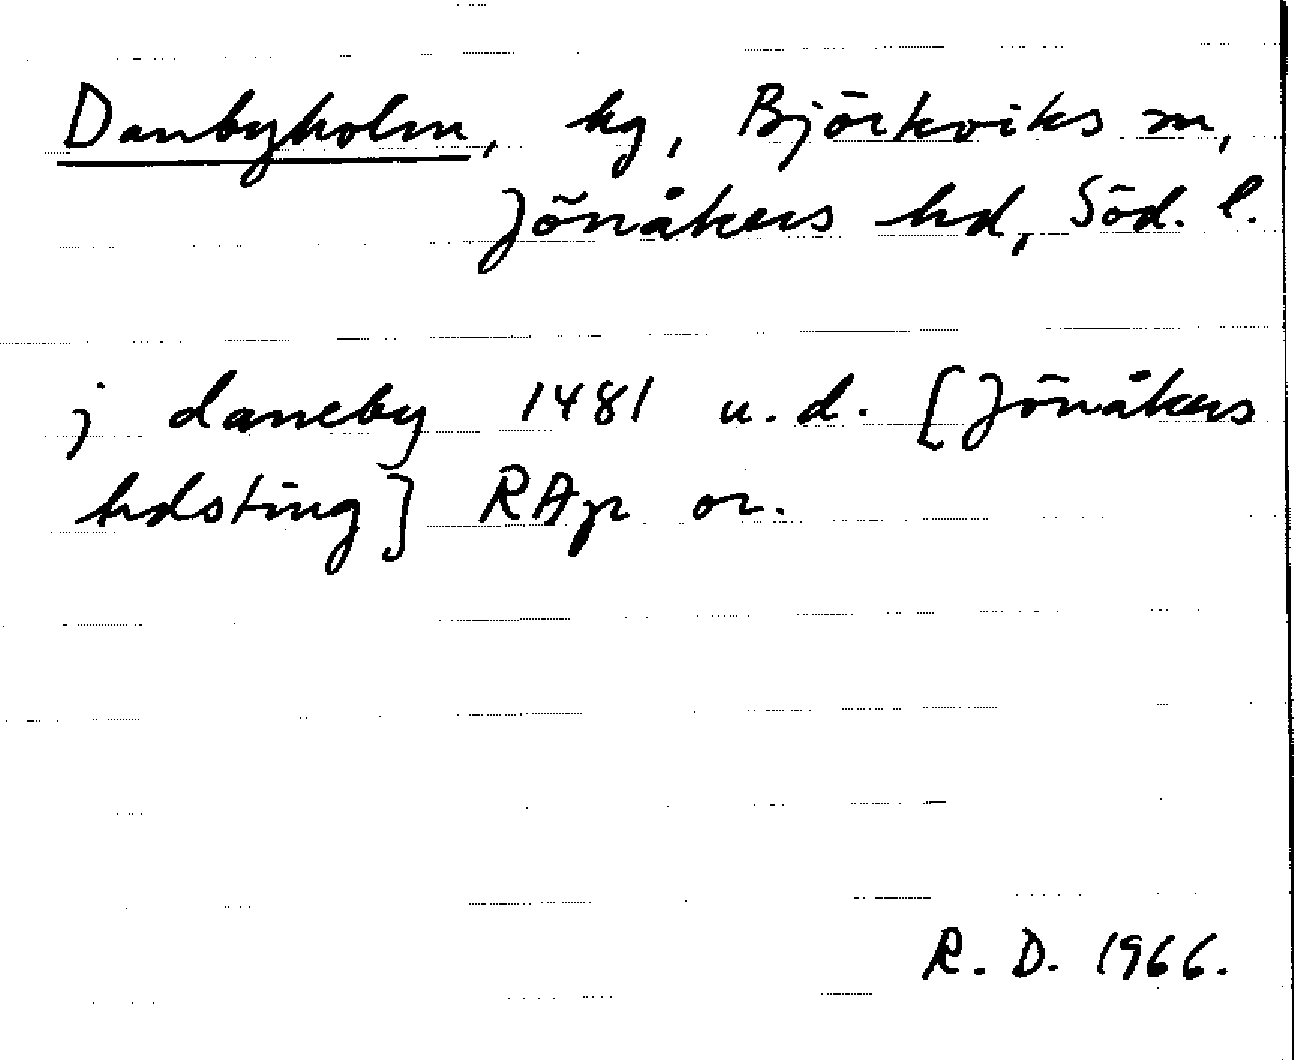 Danbyholm, hg, Björkviks sn,
Jönåkers hd, Söd. l.
j daneby 1481 u.d. [Jönåkers
hdsting] RAp or.
R. D. 1966.